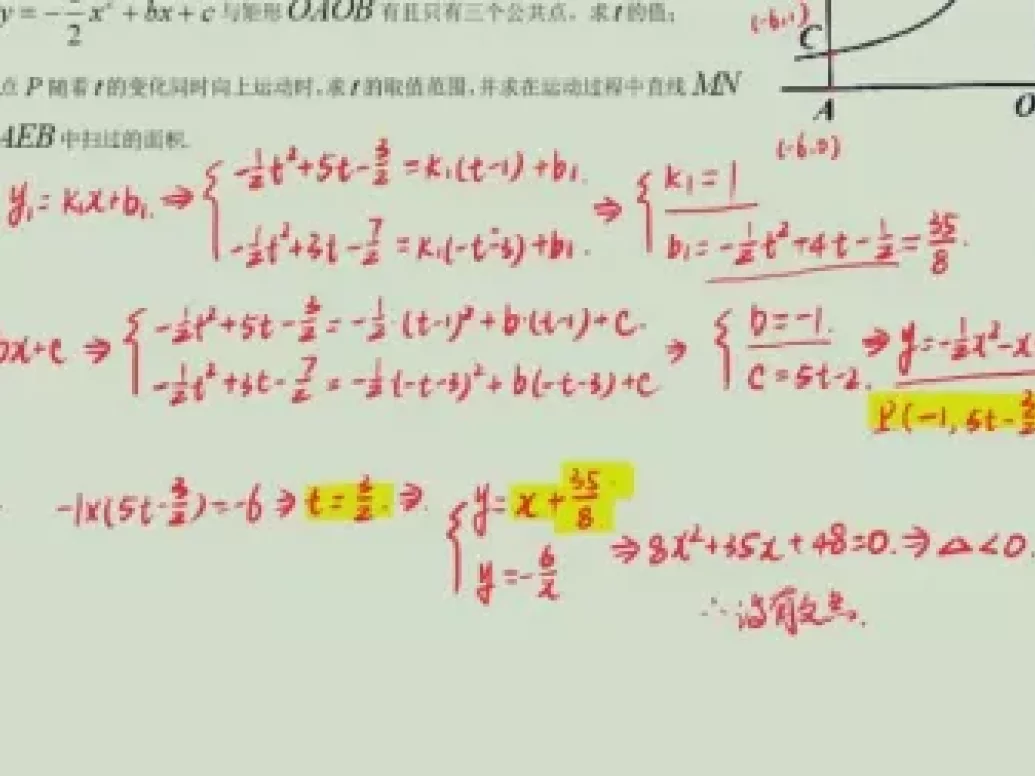 y = -1/2 x² + bx + c 与矩形 OAOB 有且只有三个公共点，求 t 的值；
(-6,1)
C
点 P 随着 t 的变化同时向上运动时，求 t 的取值范围，并求在运动过程中直线 MN
AEB 中扫过的面积.
A
O
(-6,0)
y₁ = k₁x + b₁. ⇒ { -1/2t² + 5t - 3/2 = k₁(t-1) + b₁.
-1/2t² + 3t - 7/2 = k₁(-t-3) + b₁.
⇒ { k₁ = 1
b₁ = -1/2t² + 4t - 1/2 = 35/8.
bx+c ⇒ { -1/2t² + 5t - 3/2 = -1/2·(t-1)² + b·(t-1) + c.
-1/2t² + 3t - 7/2 = -1/2(-t-3)² + b(-t-3) + c
⇒ { b = -1.
c = 5t-2.
⇒ y = -1/2x² - x
P(-1, 5t - 3/2
-1×(5t - 3/2) = -6 ⇒ t = 3/2. ⇒ { y = x + 35/8
y = -6/x
⇒ 8x² + 35x + 48 = 0. ⇒ Δ < 0.
∴ 没有交点.